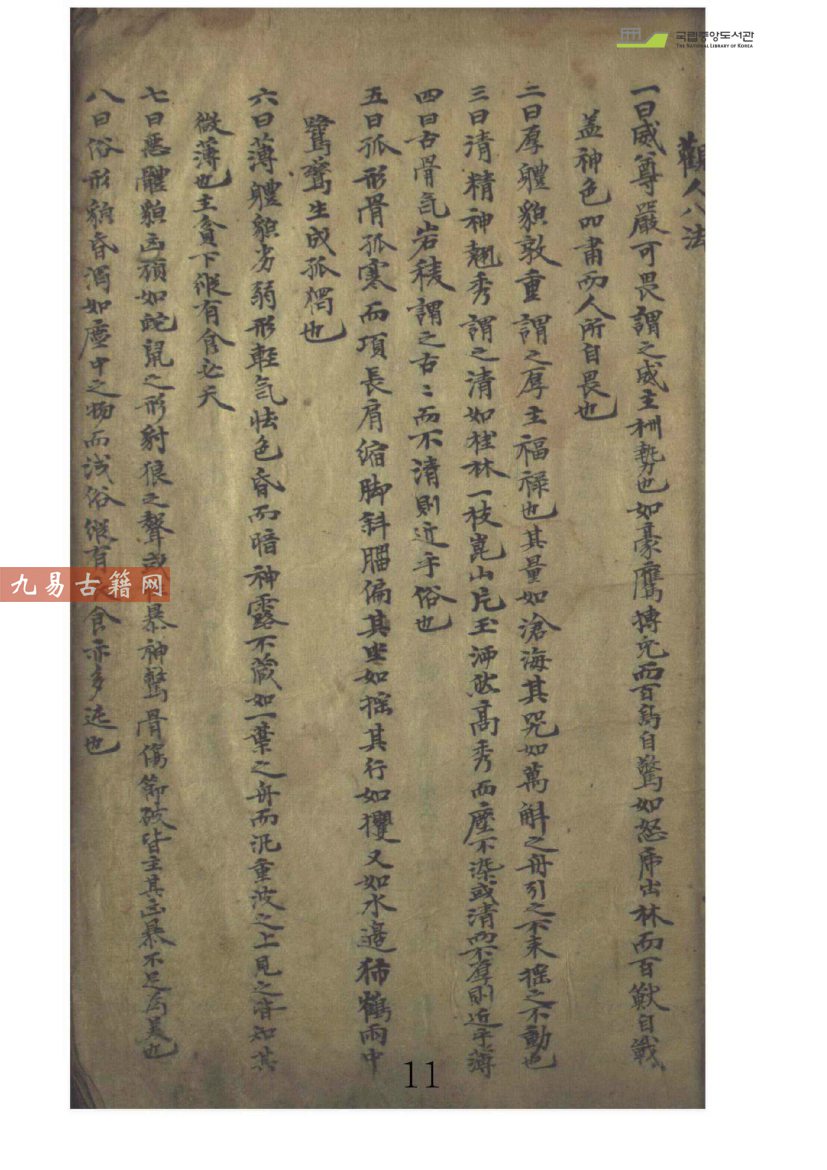 국립중앙도서관
THE NATIONAL LIBRARY OF KOREA
觀人八法
一曰威尊嚴可畏謂之威主權勢也如豪鷹搏兔而百鳥自驚如怒虎出林而百獸自戰
盖神色而肅而人所自畏也
二曰厚體貌敦重謂之厚主福祿也其量如滄海其咒如萬斛之舟引之不来搖之不動也
三曰清精神翹秀謂之清如桂林一枝崑山片玉洒然高秀而塵不染或清而不厚則近乎薄
四曰古骨氣岩稜謂之古〻而不清則近乎俗也
五曰孤形骨孤寒而項長肩縮脚斜腦偏其坐如搖其行如攫又如水邊獨鶴雨中
鷺鶿生成孤獨也
六曰薄體貌劣弱形輕氣怯色昏而暗神露不藏如一葉之舟而泛重波之上見之皆知其
微薄也主貧下縱有食必夭
七曰惡體貌凶頑如蛇鼠之形豺狼之聲或暴神驚骨傷節破皆主其凶暴不足為美也
八曰俗形貌昏濁如塵中之物而浅俗縱有食亦多迍也
九易古籍网
11